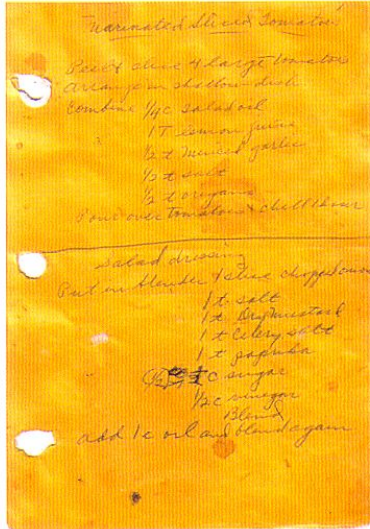 Marinated Sliced Tomatoes
Peel & slice 4 large tomatoes
arrange in shallow dish
Combine 1/4 c salad oil
1 T lemon juice
1/2 t minced garlic
1/2 t salt
1/2 t oregano
Pour over tomatoes & chill 1 hour
salad dressing
Put in blender 1 slice chopped onion
1 t salt
1 t Dry mustard
1 t Celery salt
1 t paprika
c sugar
1/2 c vinegar
Blend
add 1 c oil and blend again